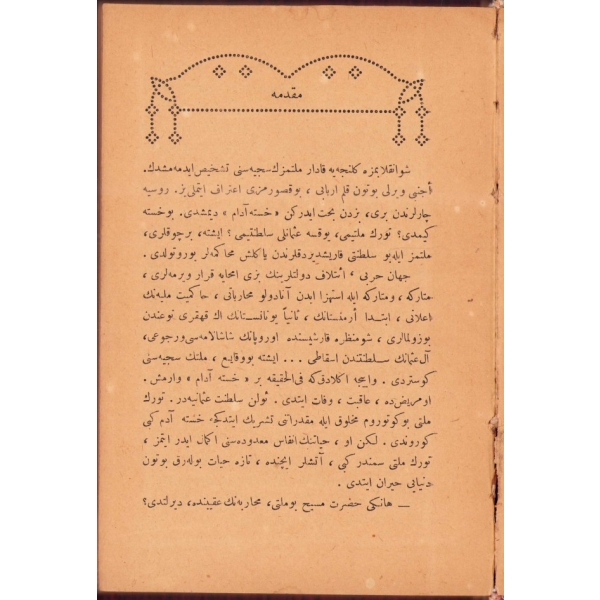 مقدمه
شو انقلابمزه كلنجه يه قادار ملتمزك سجيه سنى تشخيص ايده مه مشدك.
أجنبى ويرلى بوتون قلم اربابى ، بو قصورمزى اعتراف ايتملى يز. روسيه
چارلرندن برى، بزدن بحث ايدركن « خسته آدام » ديمشدى. بو خسته
كيمدى؟ تورك ملتيمى، يوقسه عثمانلى سلطنتيمى؟ ايشته، برچوقلرى،
ملتمز ايله بو سلطنتى قاريشديردقلرندن ياكلش محاكمه لر يوروتولدى.
جهان حربى ، ائتلاف دولتلرينك بزى امحايه قرار ويرمه لرى ،
متاركه ، ومتاركه ايله استهزا ايدن آنادولو محارباتى ، حاكميت مليه نك
اعلانى ، ابتدا أرمنستانك ، ثانياً يونانستانك اك قهقرى نوعندن
بوزولمالرى ، شو منظره قارشيسنده اوروپانك شاشالامه سى ورجوعى،
آل عثمانك سلطنتدن اسقاطى ... ايشته بو وقايع ، ملتك سجيه سنى
كوستردى . واعجه اكلادق كه فى الحقيقه بر « خسته آدام » وارمش .
او مريض ده ، عاقبت ، وفات ايتدى . ئولن سلطنت عثمانيه در . تورك
ملتى بو كوتوروم مخلوق ايله مقدراتنى تشريك ايتدكجه خسته آدم كبى
كوروندى . لكن او ، حياتنك انفاس معدوده سنى اكمال ايدر ايتمز ،
تورك ملتى سمندر كبى ، آتشلر ايچنده ، تازه حيات بوله رق بوتون
دنيايى حيران ايتدى .
— هانكى حضرت مسيح بو ملتى ، محاربه نك عقبنده ، ديرلتدى؟